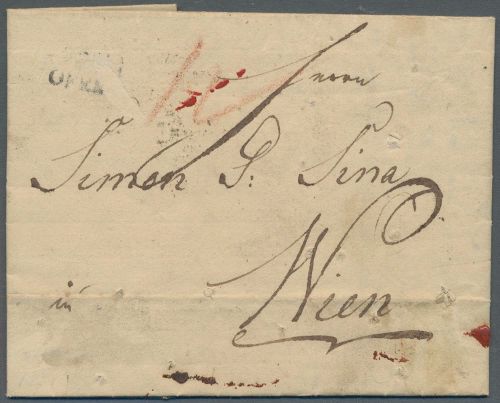 OFEN
Herrn
Simon G: Sina
in Wien